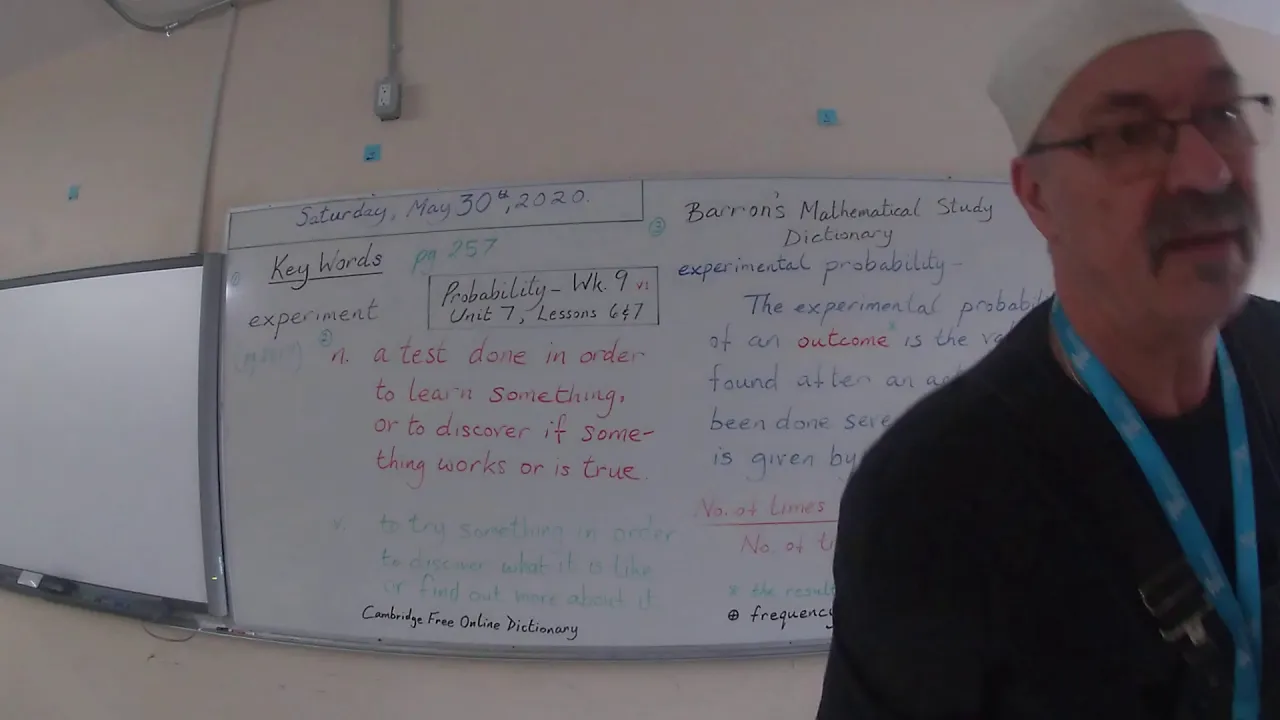 Saturday, May 30th, 2020.
Key Words pg 257
Probability - Wk. 9 v1
Unit 7, Lessons 6&7
experiment
n. a test done in order
to learn something,
or to discover if some-
thing works or is true.
v. to try something in order
to discover what it is like
or find out more about it
Cambridge Free Online Dictionary
③ Barron's Mathematical Study
Dictionary
experimental probability -
The experimental
of an outcome* is the
found after an
been done
is given by
No. of times
No. of
* the
⊕ frequency